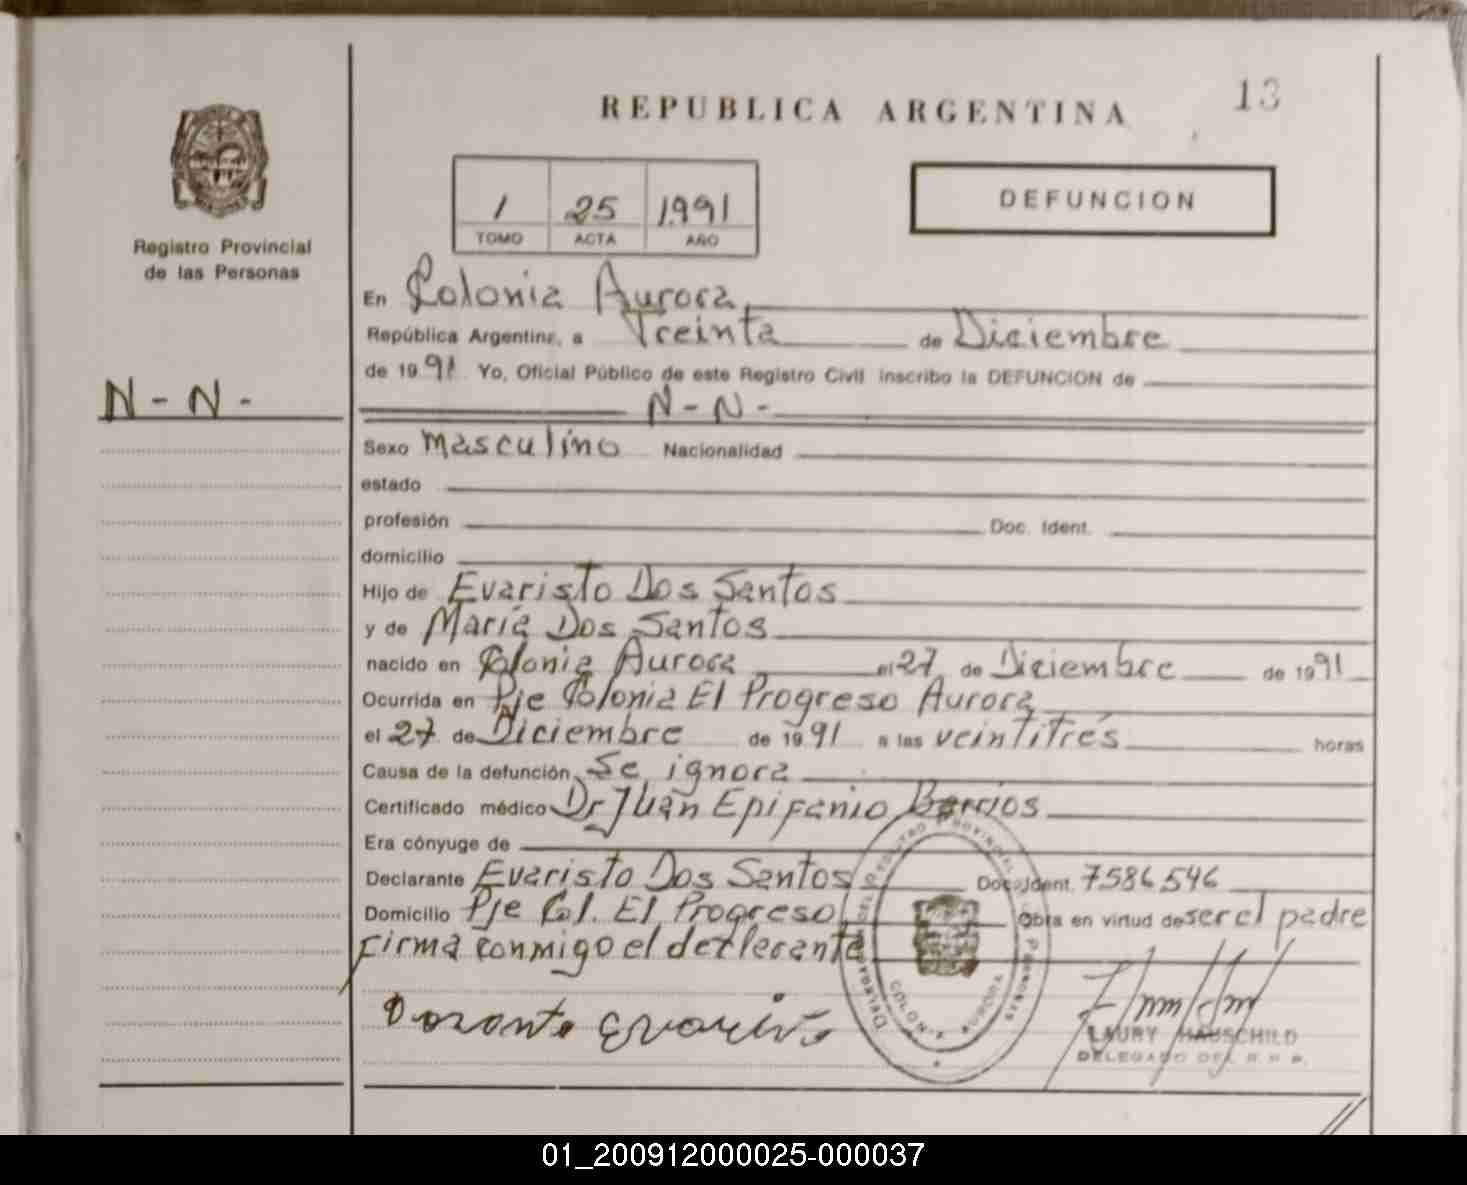 13
REPUBLICA ARGENTINA
1 25 1991
TOMO ACTA AÑO
DEFUNCION
Registro Provincial
de las Personas
En Colonia Aurora
República Argentina, a Treinta de Diciembre
de 1991 Yo, Oficial Público de este Registro Civil inscribo la DEFUNCION de
N - N -
N - N -
Sexo Masculino Nacionalidad
estado
profesión Doc. Ident.
domicilio
Hijo de Evaristo Dos Santos
y de María Dos Santos
nacido en Colonia Aurora el 27 de Diciembre de 1991
Ocurrida en Pje Colonia El Progreso Aurora
el 27 de Diciembre de 1991 a las veintitrés horas
Causa de la defunción Se ignora
Certificado médico Dr Juan Epifanio Barrios
Era cónyuge de
Declarante Evaristo Dos Santos Doc. Ident. 7586546
Domicilio Pje Col. El Progreso Obra en virtud de ser el padre
Firma conmigo el declarante
COLONIA AURORA
LAURY HAUSCHILD
DELEGADO DEL R. P. P.
01_200912000025-000037